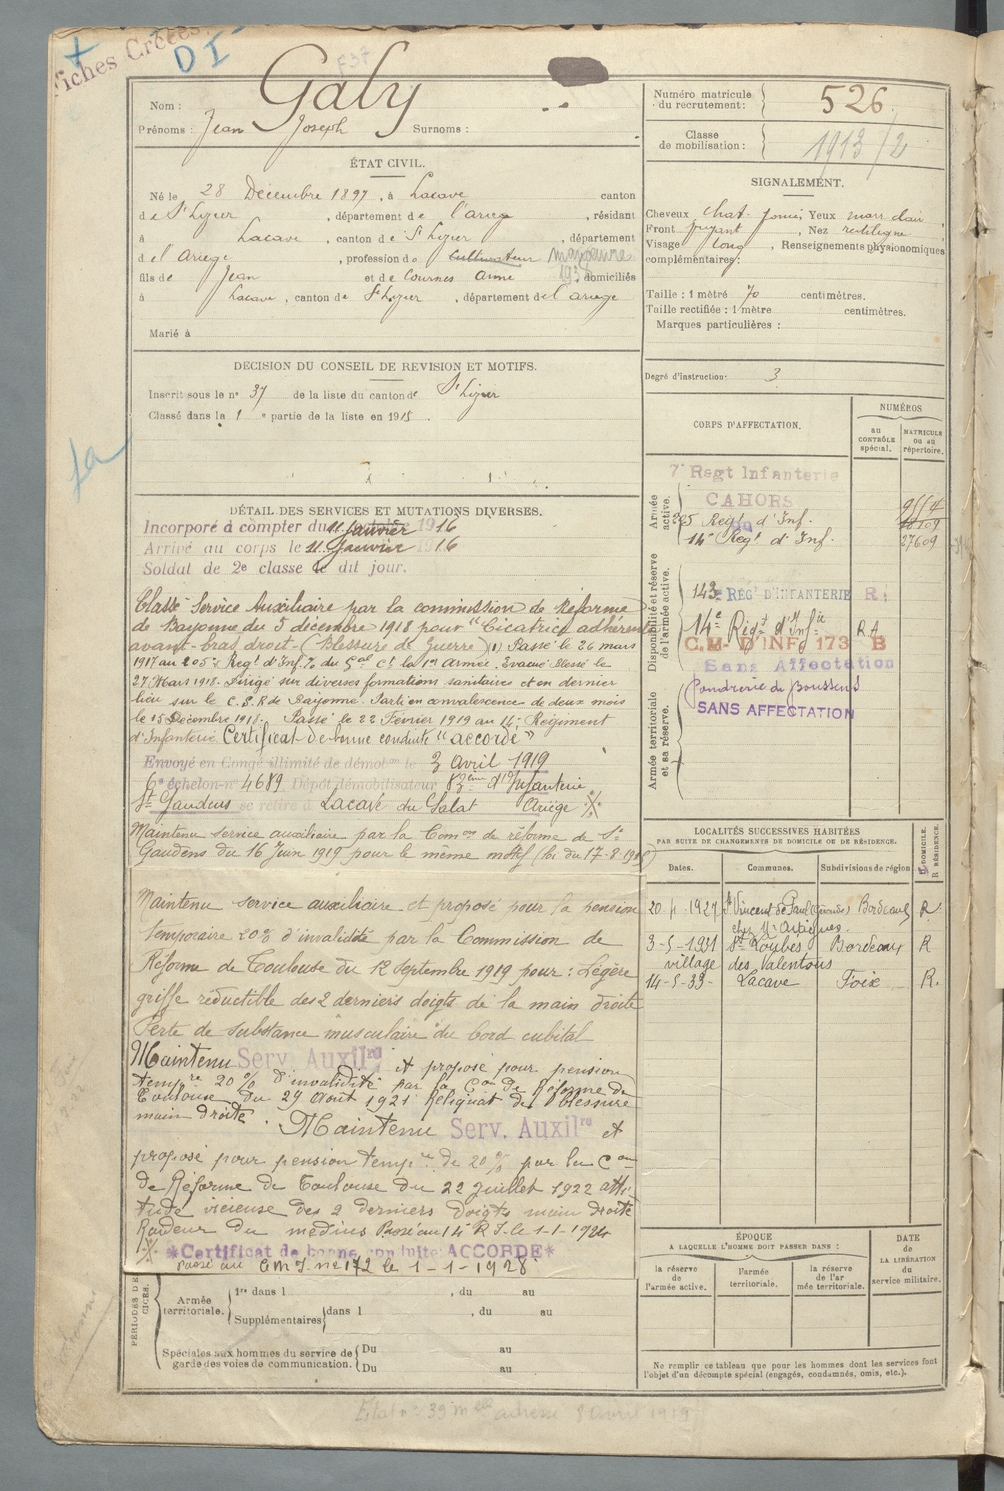 Fiches Créées
D I
F37
Galy
Nom :
Prénoms : Jean Joseph Surnoms :
Numéro matricule du recrutement : 526
Classe de mobilisation : 1913/2
ÉTAT CIVIL.
Né le 28 Décembre 1897, à Lacave canton
de St Lizier, département de l'ariege, résidant
à Lacave, canton de St Lizier, département
d el Ariege, profession de Cultivateur manœuvre
fils de Jean et de Cournes Anne domiciliés
à Lacave, canton de St Lizier, département del ariege
Marié à
SIGNALEMENT.
Cheveux chat. foncé, Yeux mar. clair
Front fuyant, Nez rectiligne
Visage long, Renseignements physionomiques
complémentaires :
Taille : 1 mètre 70 centimètres.
Taille rectifiée : 1 mètre centimètres.
Marques particulières :
Degré d'instruction : 3
DECISION DU CONSEIL DE REVISION ET MOTIFS.
Inscrit sous le n° 37 de la liste du canton de St Lizier
Classé dans la 1e partie de la liste en 1915.
fa
DÉTAIL DES SERVICES ET MUTATIONS DIVERSES.
Incorporé à compter du 11 Janvier 1916
Arrivé au corps le 11 Janvier 1916
Soldat de 2e classe le dit jour.
Classé Service Auxiliaire par la commission de Réforme
de Bayonne du 5 décembre 1918 pour "Cicatrice adhérente
avant-bras droit - (Blessure de Guerre) (1) Passé le 26 mars
1917 au 205e Regt d'Inf. Evacué blessé le
27 Mars 1918. Dirigé sur diverses formations sanitaires et en dernier
lieu sur le C.S.R de Bayonne. Parti en convalescence de deux mois
le 15 Décembre 1918. Passé le 22 Février 1919 au 14e Régiment
d'Infanterie. Certificat de bonne conduite "accordé"
Envoyé en Congé illimité de démobon le 3 avril 1919
6e échelon n° 4689 Dépôt démobilisateur 83eme d'Infanterie
St Gaudens se retire à Lacave du Salat Ariège
Maintenu service auxiliaire par la Comon de réforme de St
Gaudens du 16 Juin 1919 pour le même motif (loi du 17-8-1915)
Maintenu service auxiliaire et proposé pour la pension
temporaire 20% d'invalidité par la Commission de
Réforme de Toulouse du 12 Septembre 1919 pour : Légère
griffe réductible des 2 derniers doigts de la main droite
Perte de substance musculaire du bord cubital
Maintenu Serv. Auxilre et proposé pour pension
tempre 20% d'invalidité par la Con de Réforme de
Toulouse du 29 Août 1921 Reliquat de blessure
main droite. Maintenu Serv. Auxilre et
proposé pour pension tempre de 20% par la Con
de Réforme de Toulouse du 22 Juillet 1922 atti
tude vicieuse des 2 derniers doigts main droite
Raideur du médius Passé au 14e R.I. le 1-1-1924
*Certificat de bonne conduite ACCORDE*
passé au C.M.I. n° 172 le 1-1-1928.
CORPS D'AFFECTATION.
NUMÉROS
au CONTRÔLE spécial.
MATRICULE ou au répertoire.
Armée active.
7e Regt Infanterie
CAHORS
205 Regt d'Inf.
14e Regt d'Inf. 27609
Disponibilité et réserve de l'armée active.
143e RÉGT D'INFANTERIE R
14e Régt d'Infie R A
C.M. D'INF. 173 B
Sans Affectation
Poudrerie de Boussens
SANS AFFECTATION
Armée territoriale et sa réserve.
LOCALITÉS SUCCESSIVES HABITÉES
PAR SUITE DE CHANGEMENTS DE DOMICILE OU DE RÉSIDENCE.
Dates. Communes. Subdivisions de région D DOMICILE. R RÉSIDENCE.
1927 St Vincent de Paul (Gironde) Bordeaux R
3-5-1931 St Loubès Bordeaux R
village des Valentons
14-5-33 Lacave Foix R.
ÉPOQUE
A LAQUELLE L'HOMME DOIT PASSER DANS :
la réserve de l'armée active.
l'armée territoriale.
la réserve de l'armée territoriale.
DATE de LA LIBÉRATION du service militaire.
Ne remplir ce tableau que pour les hommes dont les services font
l'objet d'un décompte spécial (engagés, condamnés, omis, etc.).
Armée territoriale. 1re dans l , du au
Supplémentaires dans l , du au
Spéciales aux hommes du service de garde des voies de communication. Du au
Du au